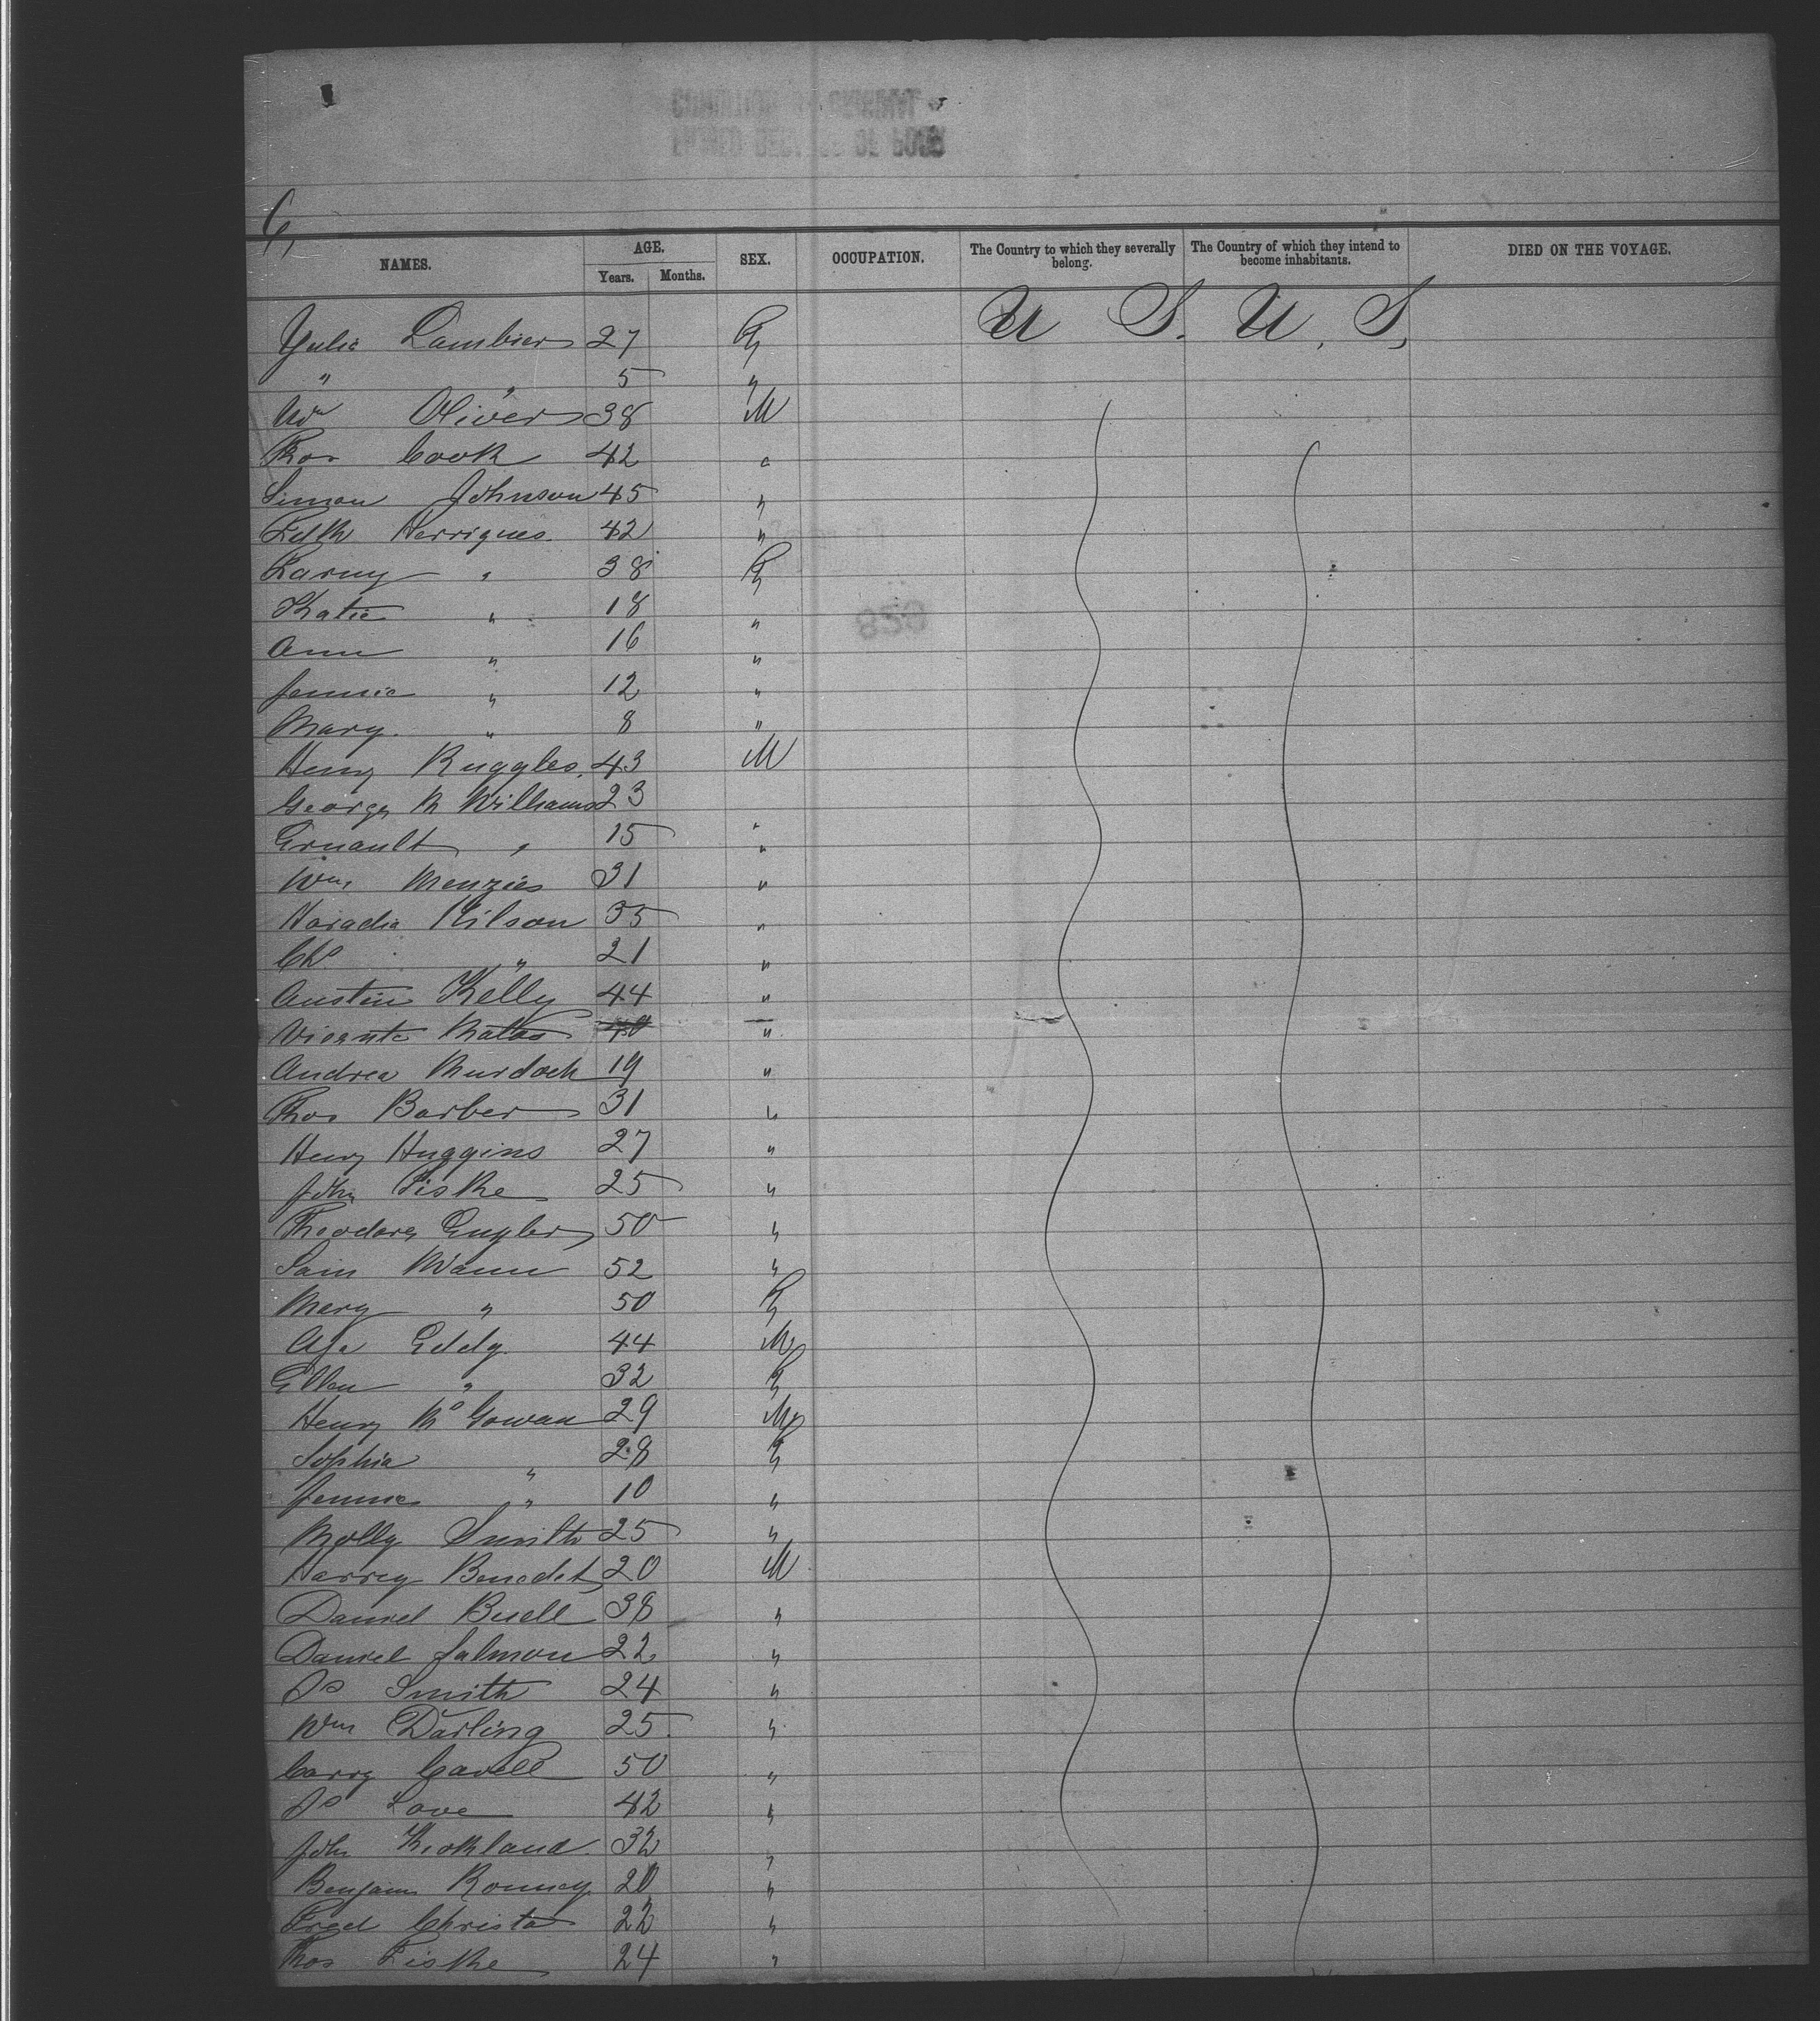 6,
NAMES. AGE. Years. Months. SEX. OCCUPATION. The Country to which they severally belong. The Country of which they intend to become inhabitants. DIED ON THE VOYAGE.
Julia Lambier 27 F U S. U. S,
" " 5 "
Wm Oliver 38 M
Thos Cook 42 "
Simon Johnson 45 "
Fdk Henriques 42 "
Fanny " 38 F
Katie " 18 "
Ann " 16 "
Jennie " 12 "
Mary " 8 "
Henry Ruggles 43 M
George M Williams 23
" 15 "
Wm Menzies 31 "
35 "
Chs " 21 "
Austin Kelly 44 "
Vicente Matas 40 "
Andrea Murdoch 19 "
Thos Barber 31 "
Henry Huggins 27 "
John Fiske 25 "
Theodore Engler 50 "
Sam Mann 52 "
Mary " 50 F
Asa Eddy 44 M
Ellen " 32 F
Henry McGowan 29 M
Sophia " 28 F
Jennie " 10 "
Molly Smith 25 "
Harry Benedet 20 M
Daniel Buell 38 "
Daniel Salmon 22 "
Js Smith 24 "
Wm Darling 25 "
Carry Cavell 50 "
Js Love 42 "
John Kirkland 32 "
Benjamin Ronney 20 "
Fred Christa 22 "
Thos Fiske 24 "